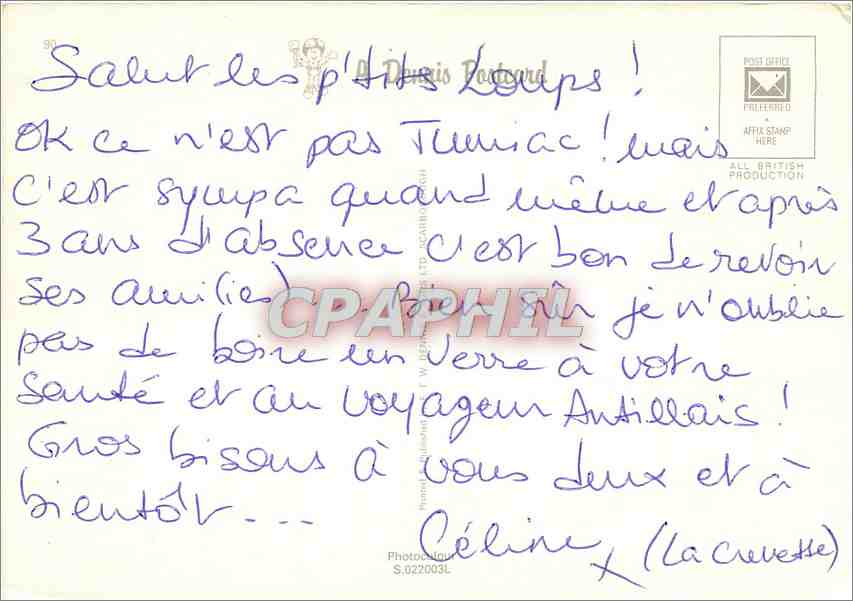 90
A Dennis Postcard
POST OFFICE
PREFERRED
AFFIX STAMP
HERE
ALL BRITISH
PRODUCTION
Salut les p'tits Loups !
OK ce n'est pas Tumiac ! mais
C'est sympa quand même et après
3 ans d'absence c'est bon de revoir
ses ami(es) ... Bien sûr je n'oublie
pas de boire un verre à votre
santé et au voyageur Antillais !
Gros bisous à vous deux et à
bientôt ---
Céline x (La crevette)
CPAPHIL
Photocolour
S.022003L